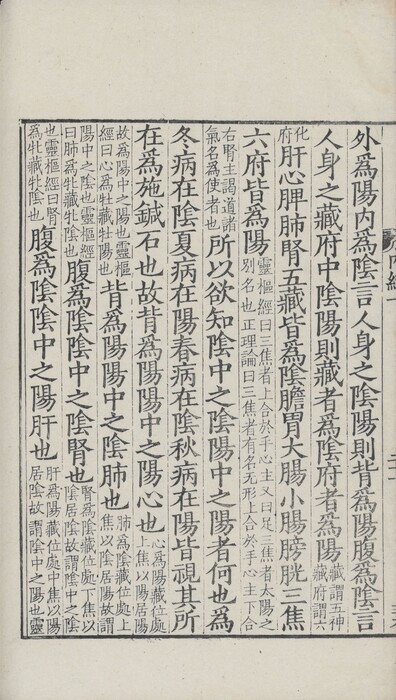 外爲陽內爲陰言人身之陰陽則背爲陽腹爲陰言
人身之藏府中陰陽則藏者爲陰府者爲陽藏謂五神藏府謂六
化府肝心脾肺腎五藏皆爲陰膽胃大腸小腸膀胱三焦
六府皆爲陽靈樞經曰三焦者上合於手心主又曰足三焦者太陽之別名也正理論曰三焦者有名无形上合於手心主下合
右腎主謁道諸氣名爲使者也所以欲知陰中之陰陽中之陽者何也爲
冬病在陰夏病在陽春病在陰秋病在陽皆視其所
在爲施鍼石也故背爲陽陽中之陽心也心爲陽藏位處上焦以陽居陽
故爲陽中之陽也靈樞經曰心爲牡藏牡陽也背爲陽陽中之陰肺也肺爲陰藏位處上焦以陰居陽故謂
陽中之陰也靈樞經曰肺爲牝藏牝陰也腹爲陰陰中之陰腎也腎爲陰藏位處下焦以陰居陰故謂陰中之陰
也靈樞經曰腎爲牝藏牝陰也腹爲陰陰中之陽肝也肝爲陽藏位處中焦以陽居陰故謂陰中之陽也靈
內經一